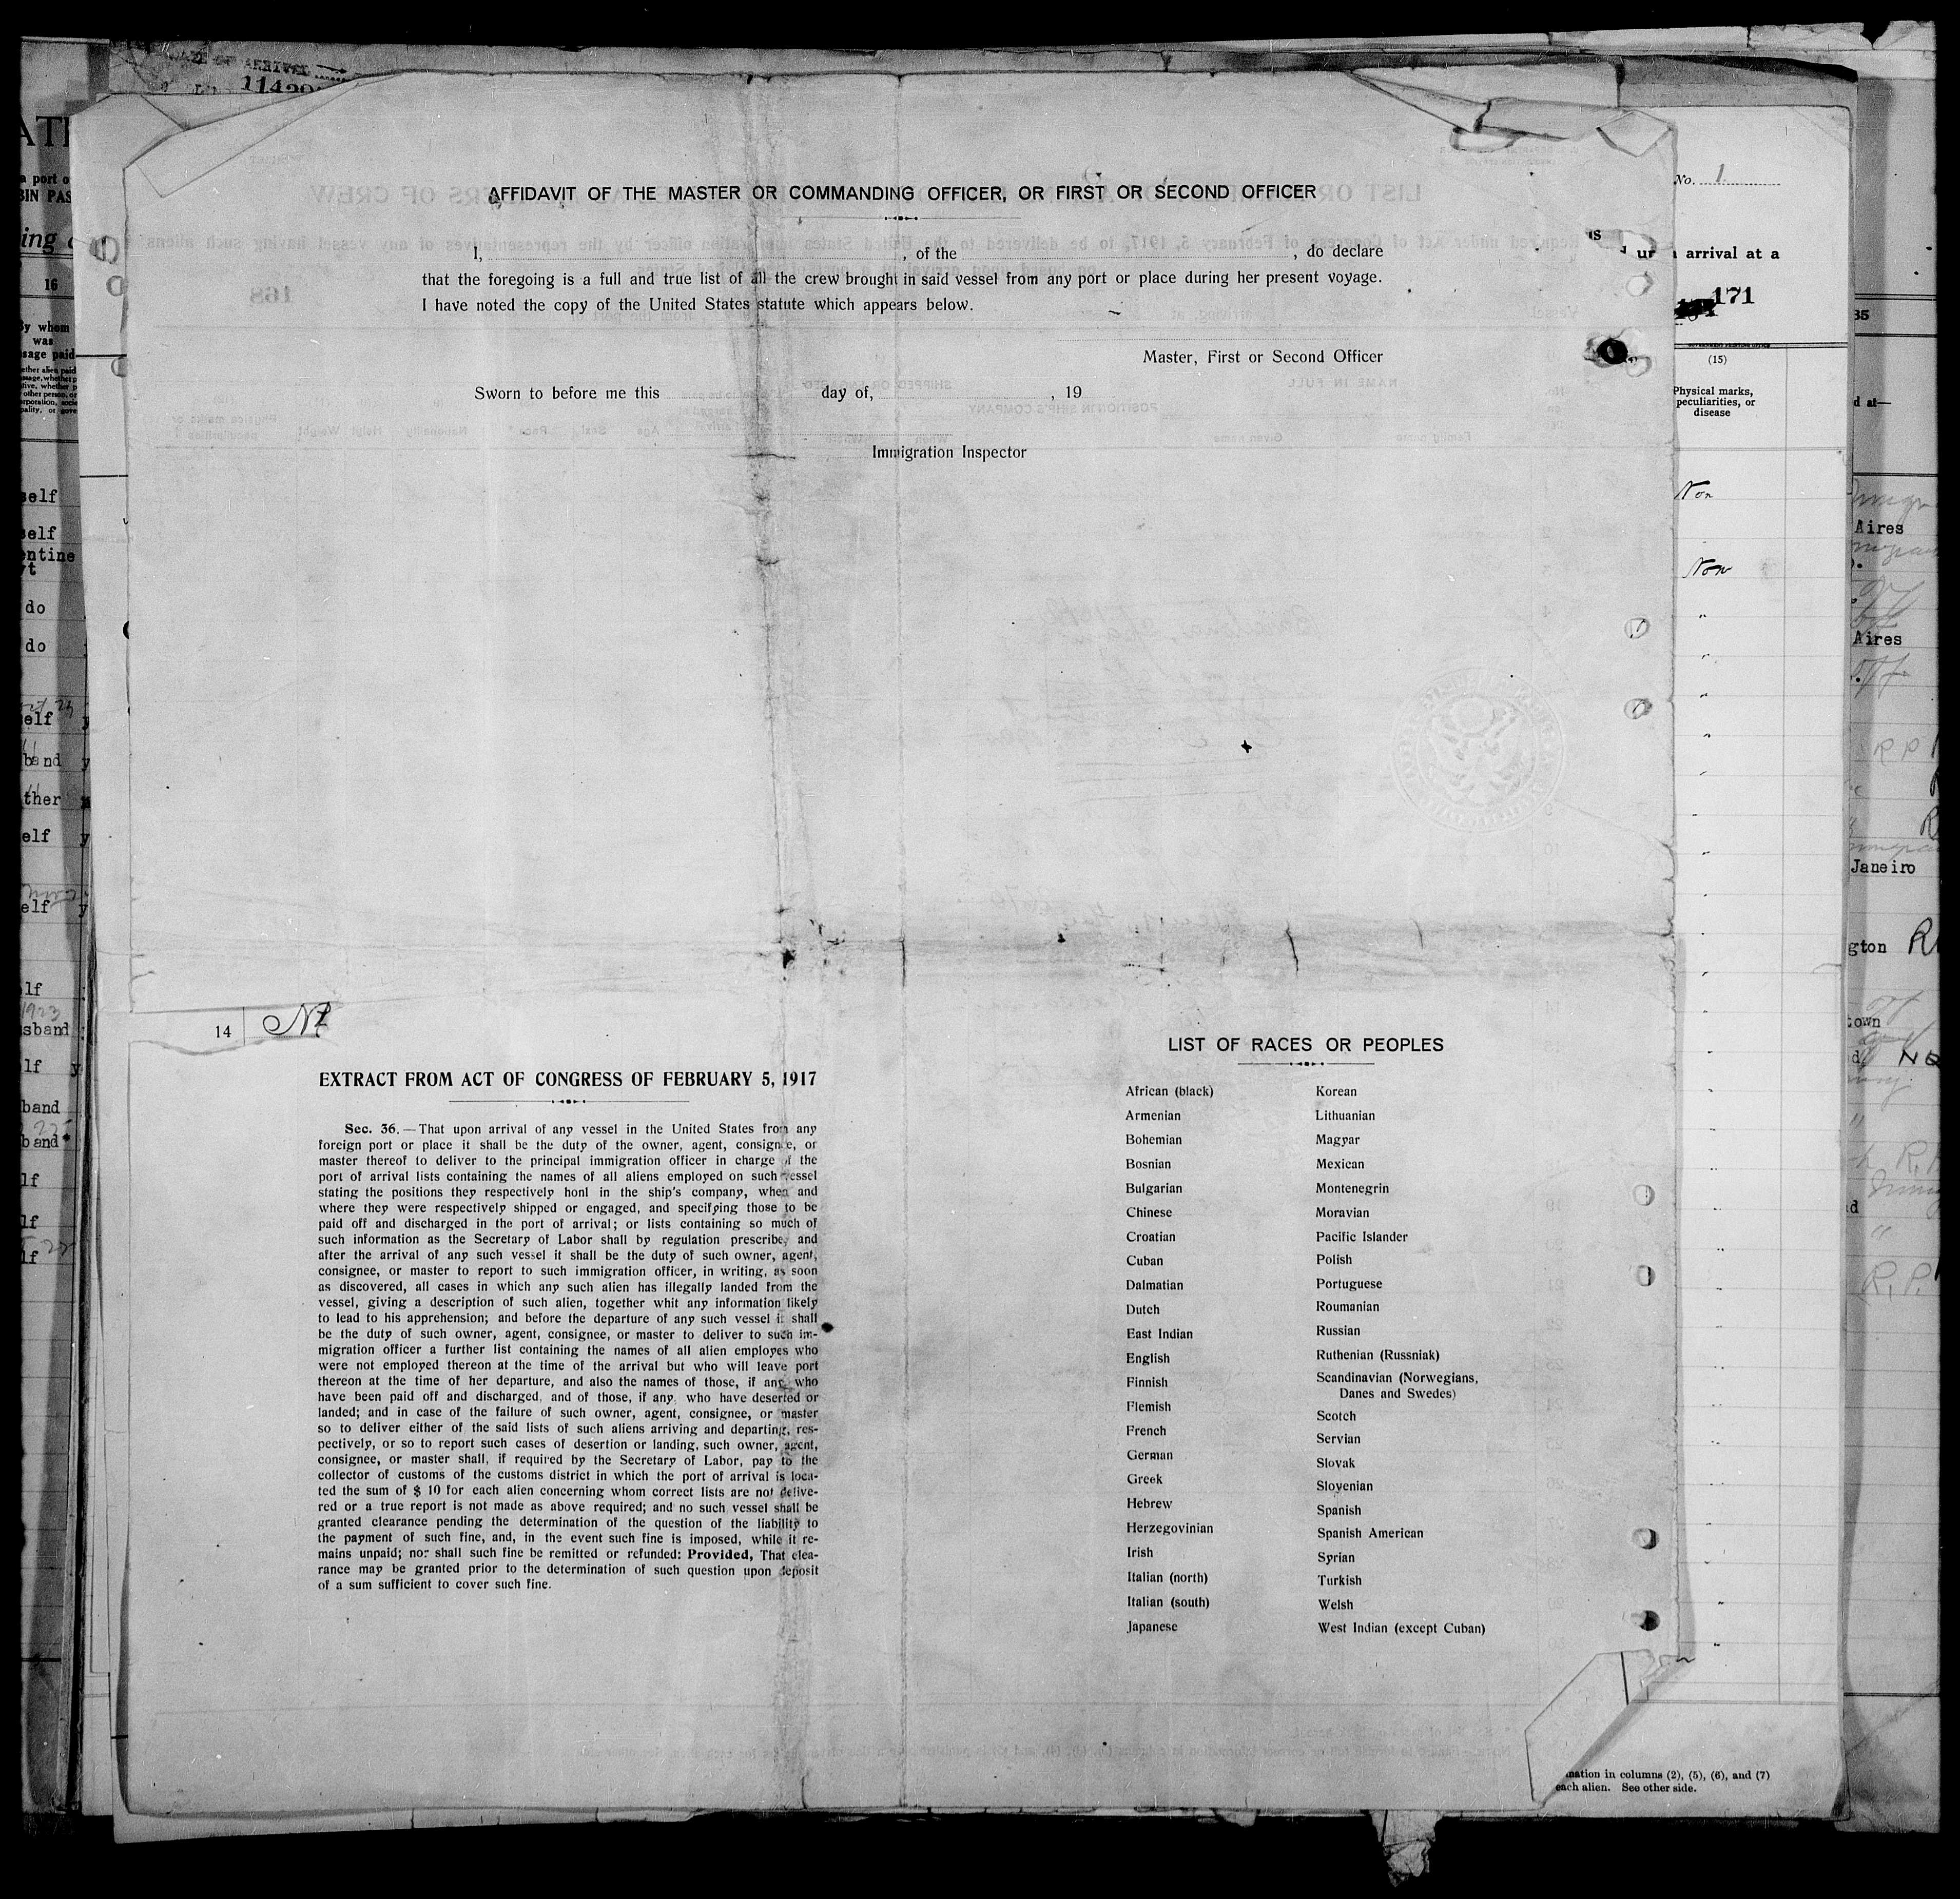 AFFIDAVIT OF THE MASTER OR COMMANDING OFFICER, OR FIRST OR SECOND OFFICER
I, , of the , do declare
that the foregoing is a full and true list of all the crew brought in said vessel from any port or place during her present voyage.
I have noted the copy of the United States statute which appears below.
Master, First or Second Officer
Sworn to before me this day of, , 19
Immigration Inspector
14
EXTRACT FROM ACT OF CONGRESS OF FEBRUARY 5, 1917
Sec. 36. — That upon arrival of any vessel in the United States from any
foreign port or place it shall be the duty of the owner, agent, consignee, or
master thereof to deliver to the principal immigration officer in charge of the
port of arrival lists containing the names of all aliens employed on such vessel
stating the positions they respectively honl in the ship's company, when and
where they were respectively shipped or engaged, and specifying those to be
paid off and discharged in the port of arrival; or lists containing so much of
such information as the Secretary of Labor shall by regulation prescribe, and
after the arrival of any such vessel it shall be the duty of such owner, agent,
consignee, or master to report to such immigration officer, in writing, as soon
as discovered, all cases in which any such alien has illegally landed from the
vessel, giving a description of such alien, together whit any information likely
to lead to his apprehension; and before the departure of any such vessel it shall
be the duty of such owner, agent, consignee, or master to deliver to such im-
migration officer a further list containing the names of all alien employes who
were not employed thereon at the time of the arrival but who will leave port
thereon at the time of her departure, and also the names of those, if any, who
have been paid off and discharged, and of those, if any, who have deserted or
landed; and in case of the failure of such owner, agent, consignee, or master
so to deliver either of the said lists of such aliens arriving and departing, res-
pectively, or so to report such cases of desertion or landing, such owner, agent,
consignee, or master shall, if required by the Secretary of Labor, pay to the
collector of customs of the customs district in which the port of arrival is loca-
ted the sum of $ 10 for each alien concerning whom correct lists are not delive-
red or a true report is not made as above required; and no such vessel shall be
granted clearance pending the determination of the question of the liability to
the payment of such fine, and, in the event such fine is imposed, while it re-
mains unpaid; nor shall such fine be remitted or refunded: Provided, That clea-
rance may be granted prior to the determination of such question upon deposit
of a sum sufficient to cover such fine.
LIST OF RACES OR PEOPLES
African (black)
Armenian
Bohemian
Bosnian
Bulgarian
Chinese
Croatian
Cuban
Dalmatian
Dutch
East Indian
English
Finnish
Flemish
French
German
Greek
Hebrew
Herzegovinian
Irish
Italian (north)
Italian (south)
Japanese
Korean
Lithuanian
Magyar
Mexican
Montenegrin
Moravian
Pacific Islander
Polish
Portuguese
Roumanian
Russian
Ruthenian (Russniak)
Scandinavian (Norwegians,
Danes and Swedes)
Scotch
Servian
Slovak
Slovenian
Spanish
Spanish American
Syrian
Turkish
Welsh
West Indian (except Cuban)
No. 1
arrival at a
171
(15)
Physical marks,
peculiarities, or
disease
Non
Non
in columns (2), (5), (6), and (7)
each alien. See other side.
16
By whom
was
do
do
Aires
Aires
Janeiro